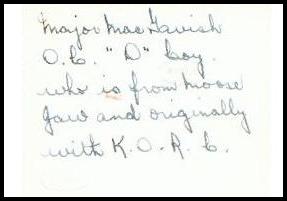 Major MacTavish
O.C. "D" Coy.
who is from Moose
Jaw and originally
with K.O.R.C.